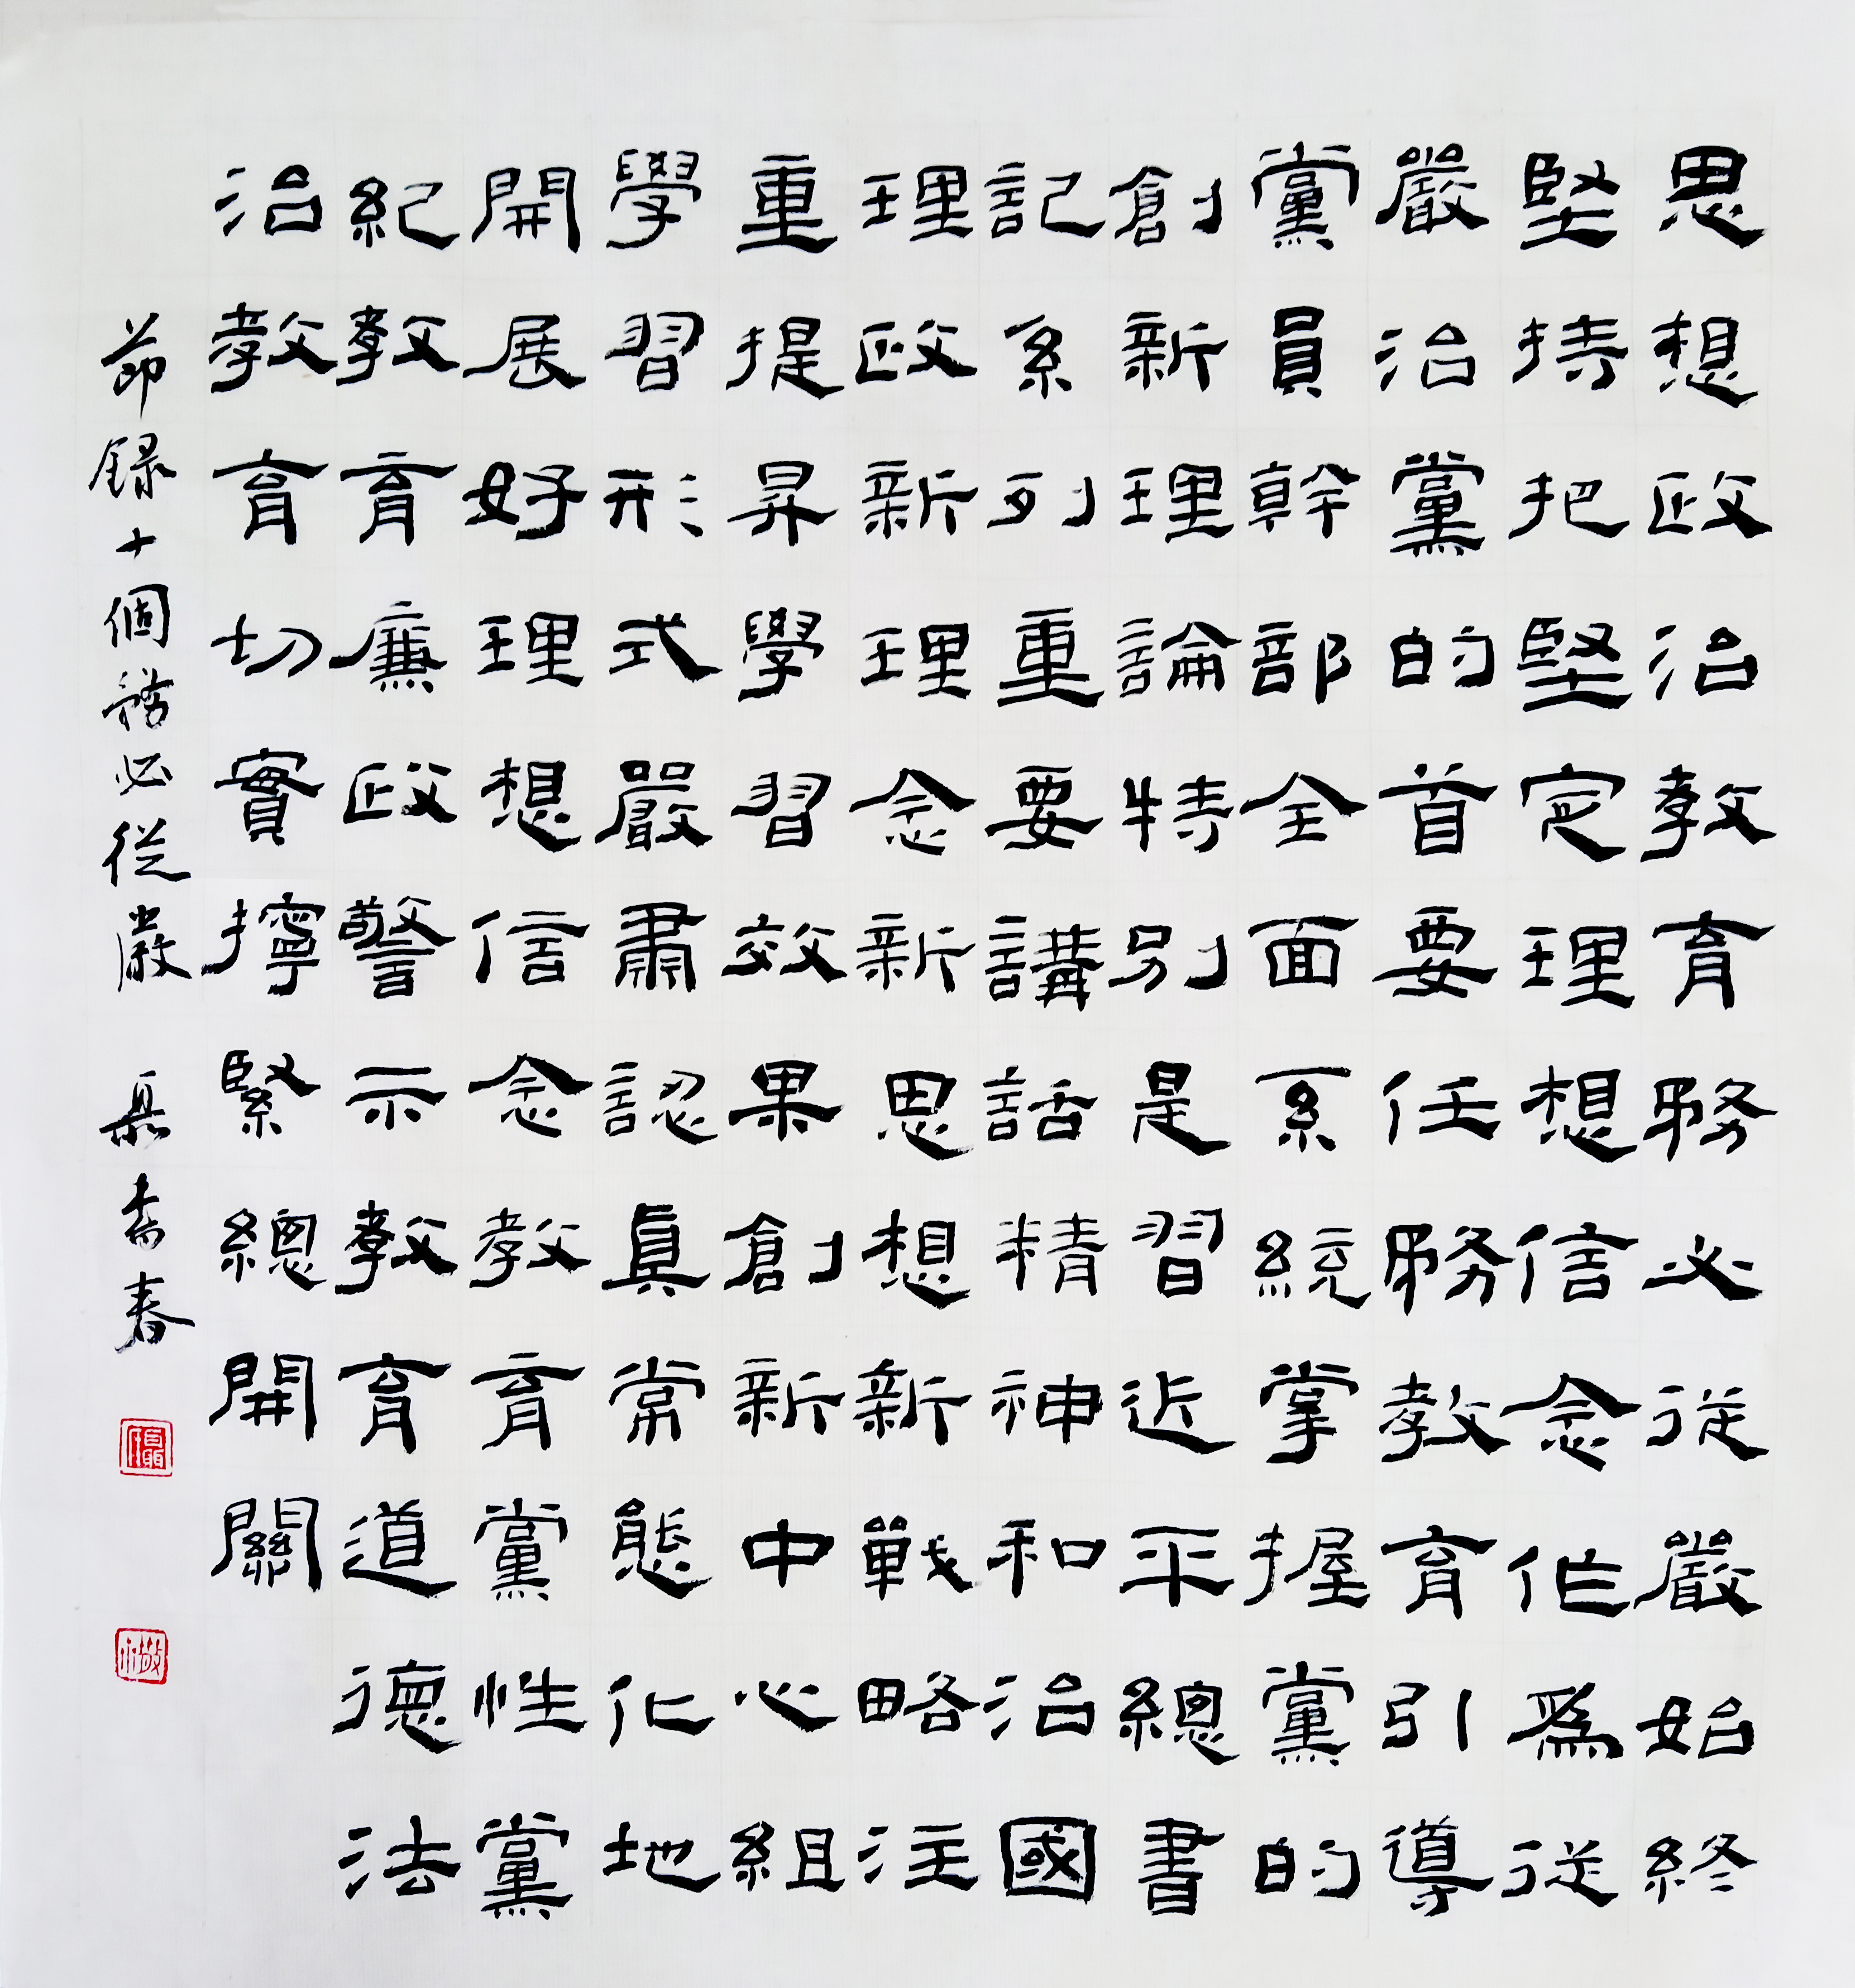 思想政治教育務必從嚴始終
堅持把堅定理想信念作爲從
嚴治黨的首要任務教育引導
黨員幹部全面系統掌握黨的
創新理論特別是習近平總書
記系列重要講話精神和治國
理政新理念新思想新戰略注
重提昇學習效果創新中心組
學習形式嚴肅認真常態化地
開展好理想信念教育黨性黨
紀教育廉政警示教育道德法
治教育切實擰緊總開關
節録十個務必從嚴 聶喬春